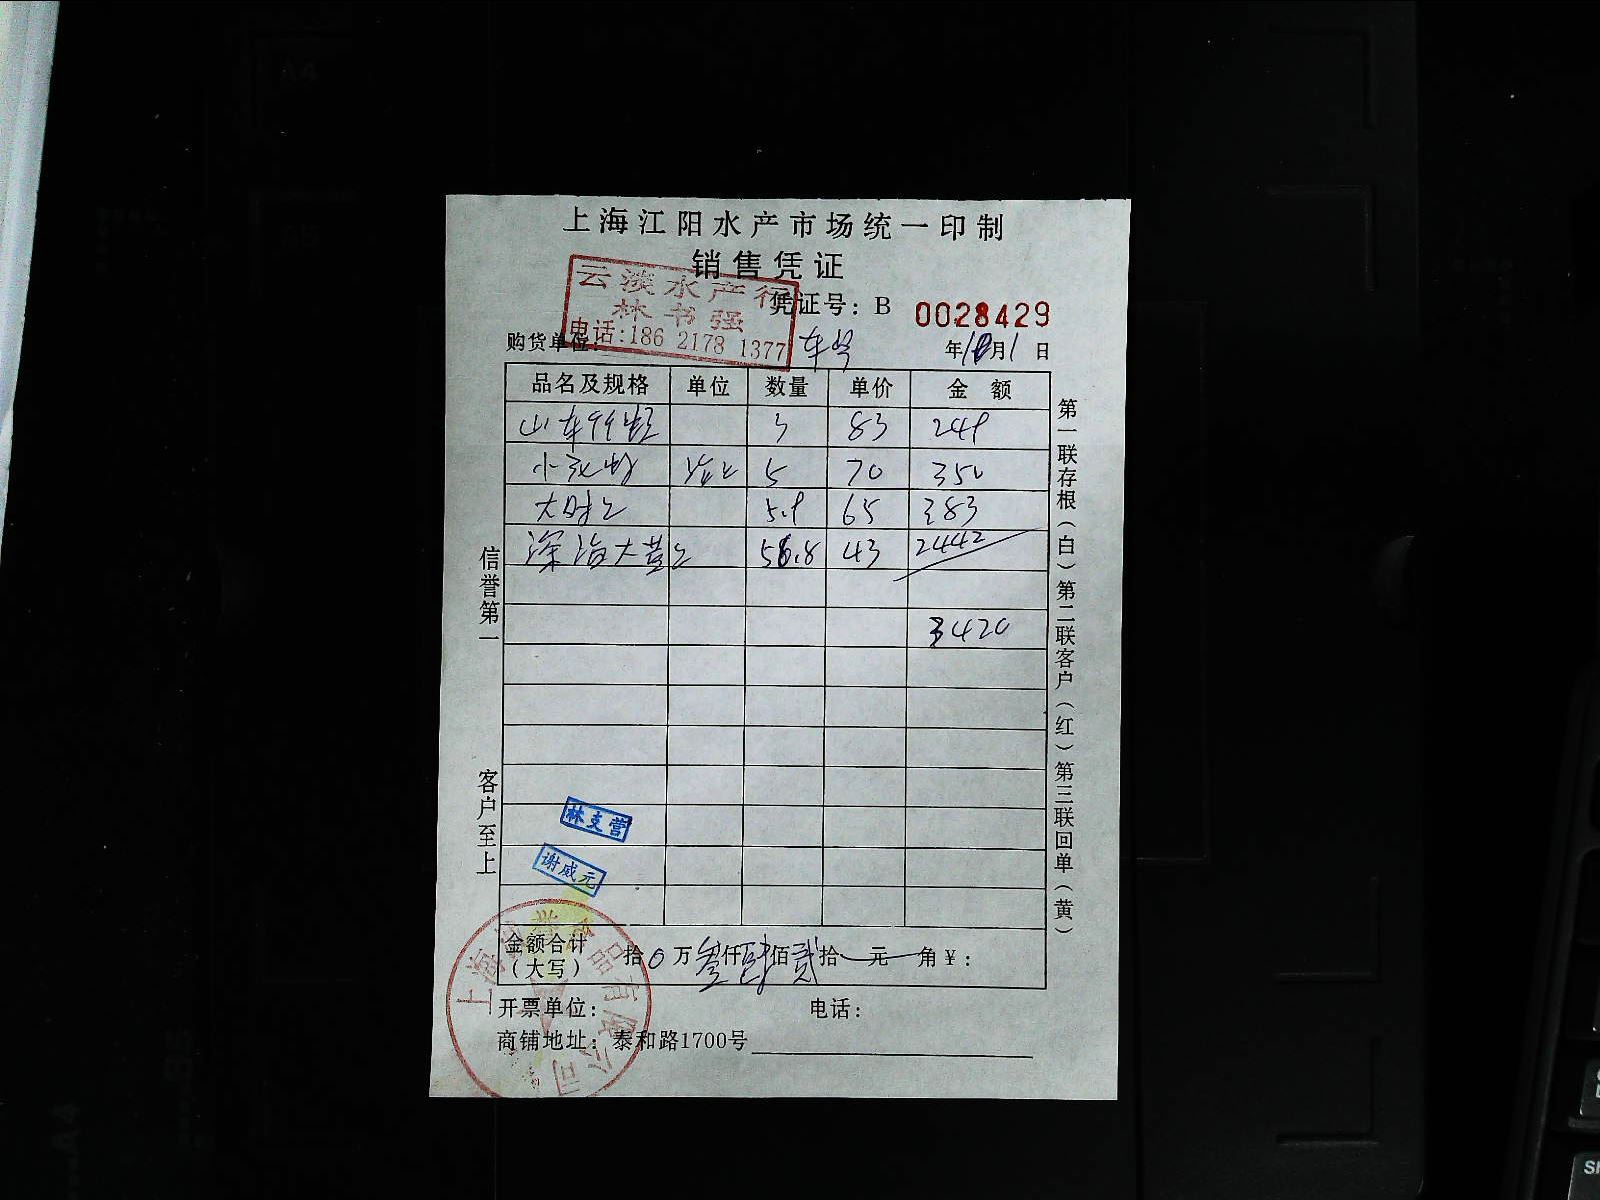 上海江阳水产市场统一印制
销售凭证
云淡水产行
林书强
电话:186 2178 1377
凭证号: B 0028429
购货单位: 年10月1日
品名及规格 单位 数量 单价 金额
3 83 249
5 70 350
5.9 65 383
深海大 56.8 43 2442
3420
信誉第一
客户至上
第一联存根(白)第二联客户(红)第三联回单(黄)
林支营
谢威元
金额合计(大写) 拾0万叁仟肆佰贰拾 元 角¥:
开票单位: 电话:
商铺地址: 泰和路1700号
上海 品有限公司